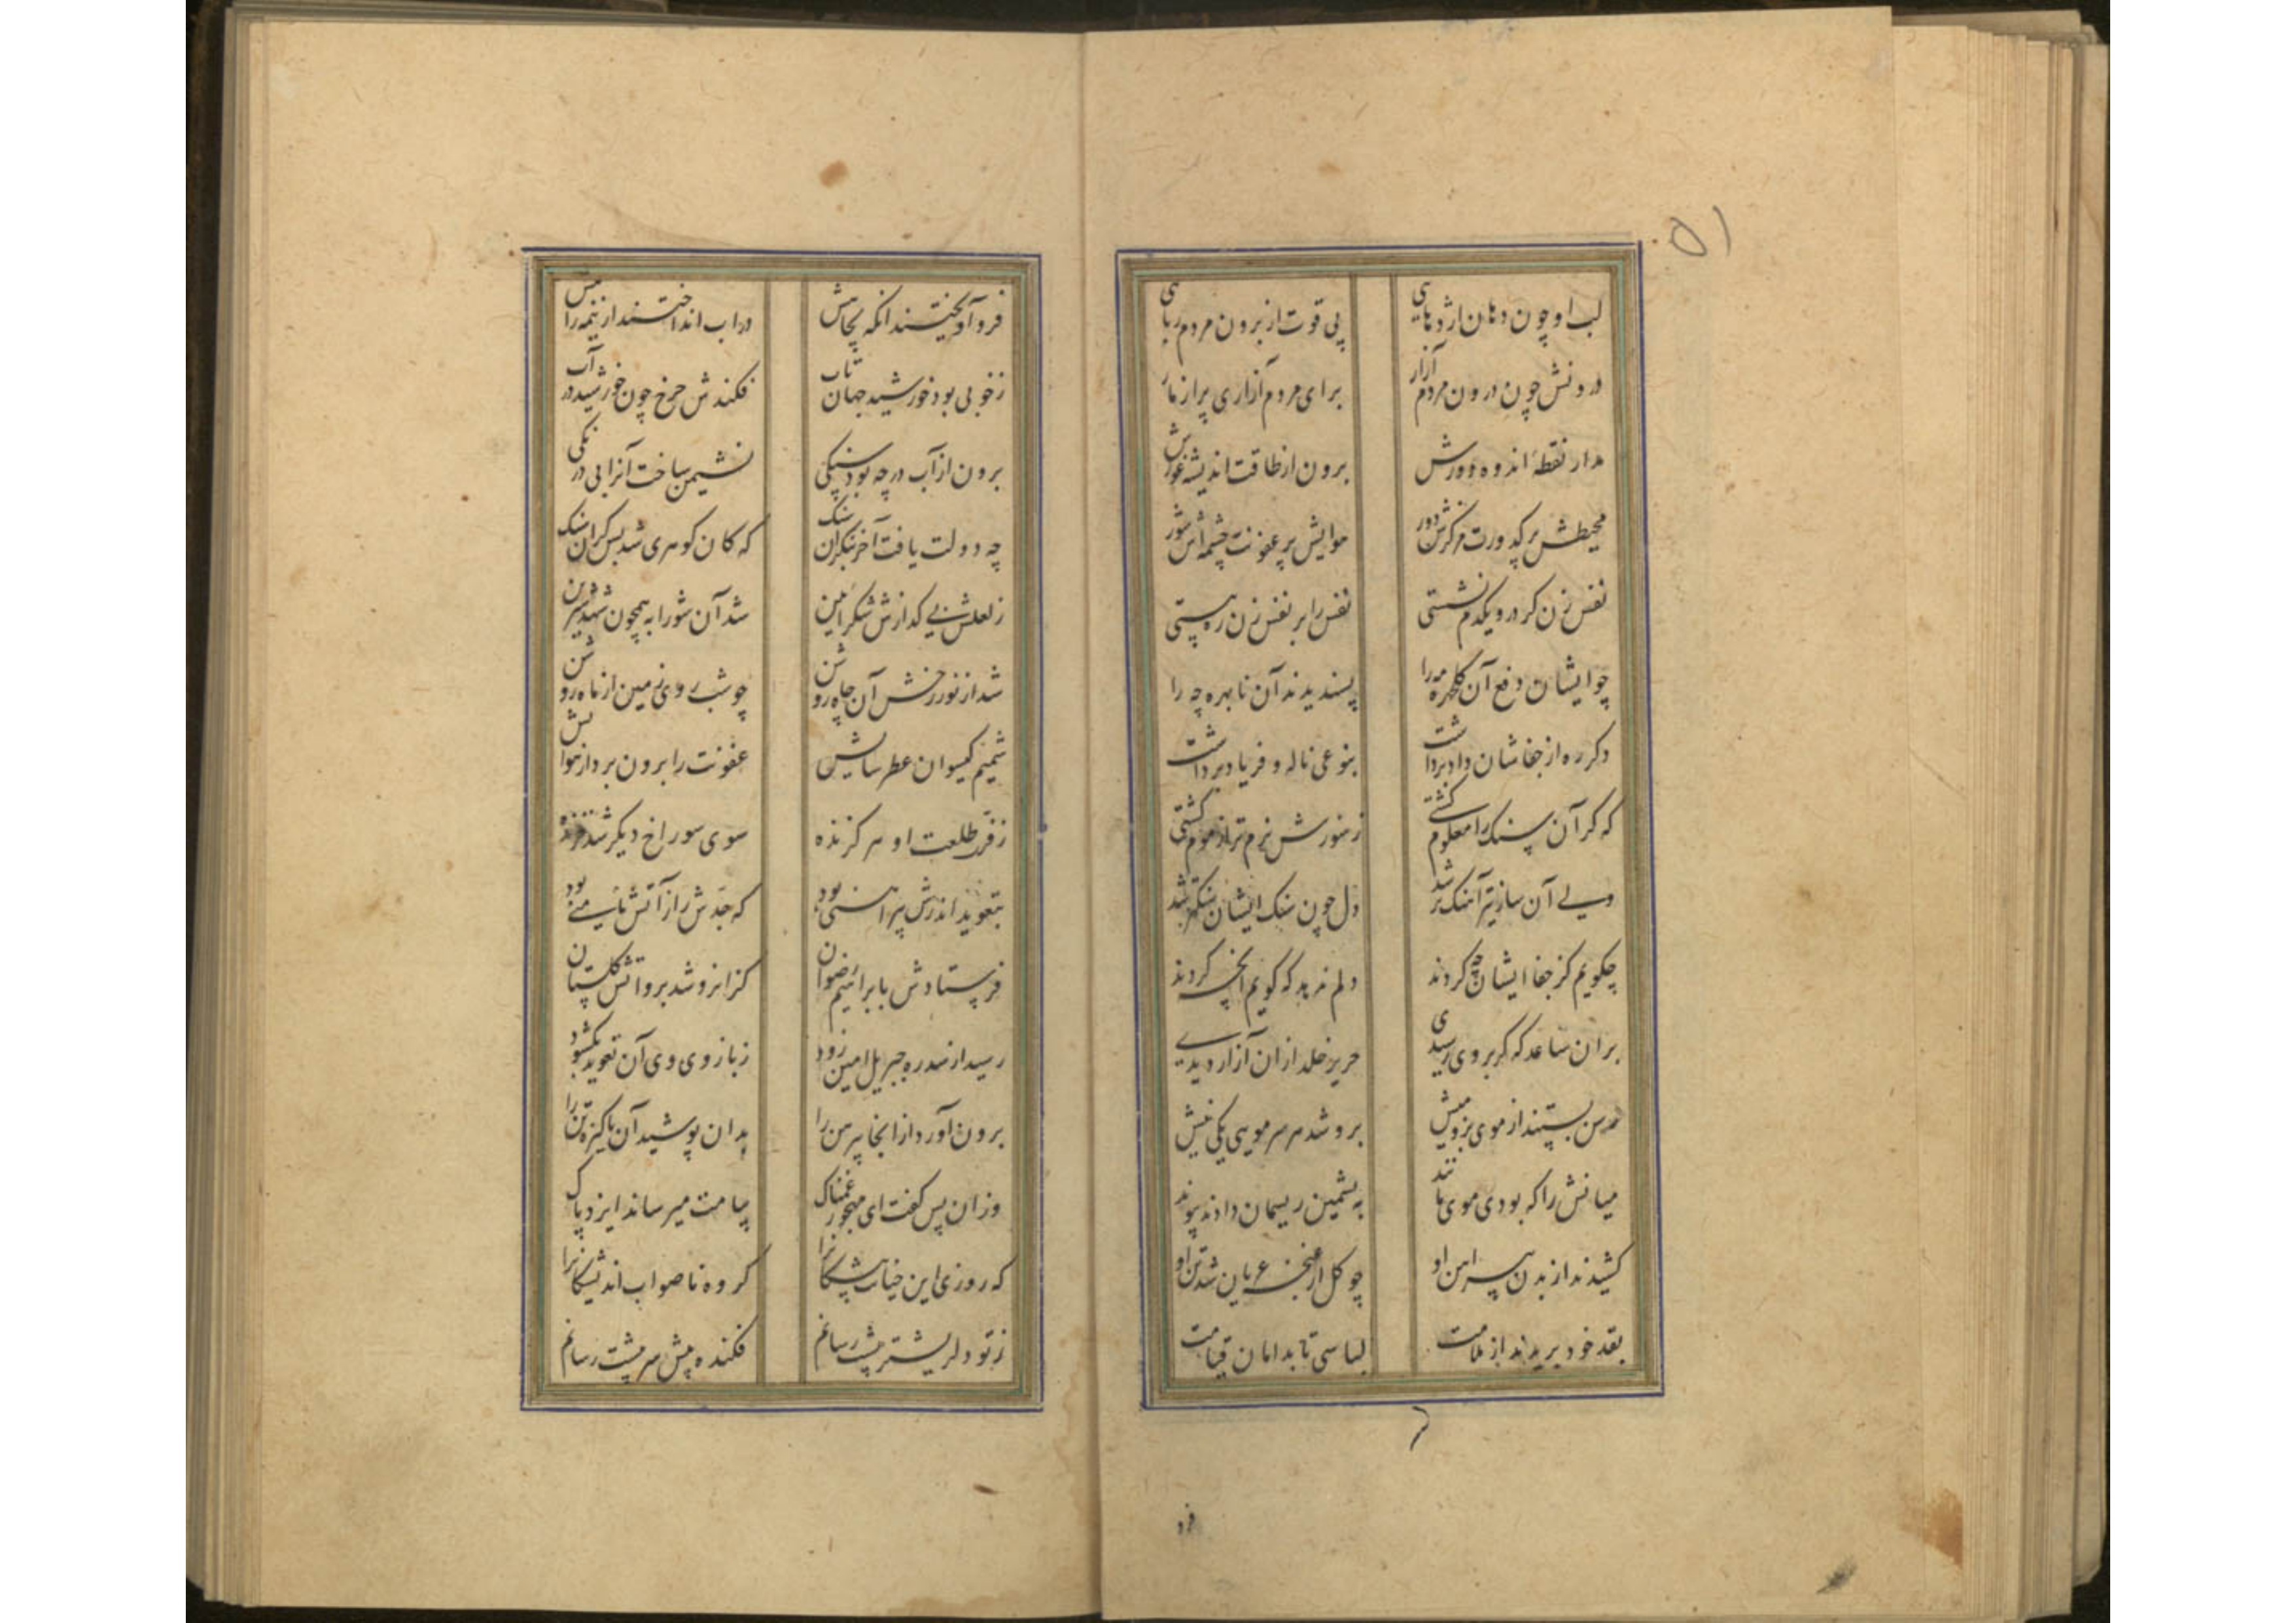 ۵۱
لب او چون دهان اژدهایی پی قوت از برون مردم ربایی
درونش چون درون مردم آزار برای مردم آزاری پر از مار
مدار نقطهٔ اندوه دورش برون از طاقت اندیشه غورش
محیطش پر کدورت مرکزش دور هوایش پر عفونت چشمه‌اش شور
نفس زن گر درو یکدم نشستی نفس را بر نفس زن ره ببستی
چو ایشان دفع آن گلچهره مه را پسندیدند آن نابهره چه را
دگر ره از جفاشان داد برداشت بنوعی ناله و فریاد برداشت
که گر آن سنگ را معلوم گشتی ز سوزش نرم‌تر از موم گشتی
ولی آن ساز تیز آهنگ‌تر شد دل چون سنگ ایشان سنگ‌تر شد
چگویم کز جفا ایشان چه کردند دلم ندهد که گویم آنچه کردند
بر آن ساعد که گر بر وی رسیدی حریر خلد از آن آزار دیدی
رسن بستند از موی بز و میش برو شد هر سر مویی یکی نیش
میانش را که بودی موی مانند به پشمین ریسمان دادند پیوند
کشیدند از بدن پیراهن او چو گل از غنچه عریان شد تن او
بقد خود بریدند از ملامت لباسی تا بدامان قیامت
فرو
فرو آویختند آنگه بچاهش در آب انداختند از نیمه راهش
ز خوبی بود خورشید جهان تاب فکندش چرخ چون خورشید در آب
برون از آب در چه بود سنگی نشیمن ساخت آنرا بی درنگی
چه دولت یافت آخر بنگر آن سنگ که کان گوهری شد بس گران سنگ
ز لعلش بی گذارش شکر آیین شد آن شورابه همچون شهد شیرین
شد از نور رخش آن چاه روشن چو شب روی زمین از ماه روشن
شمیم گیسوان عطر سایش عفونت را برون برد از هوایش
ز فر طلعت او هر گزنده سوی سوراخ دیگر شد خزنده
بتعویذ اندرش پیراهنی بود که جدش را ز آتش مامنی بود
فرستادش بابراهیم رضوان کزان رو شد برو آتش گلستان
رسید از سدره جبریل امین زود ز بازوی وی آن تعویذ بگشود
برون آورد از آنجا پیرهن را بدان پوشید آن پاکیزه تن را
وزان پس گفت ای مهجور غمناک پیامت میرساند ایزد پاک
که روزی این خیانت پیشگانرا گروه ناصواب اندیشگانرا
ز تو دلریش‌تر پیشت رسانم فکنده پیش سر پیشت رسانم